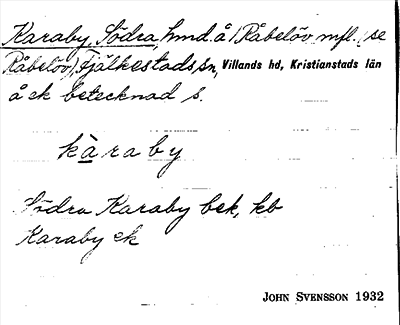 Karaby, Södra, hmd. å 1 Råbelöv mfl. (se
Råbelöv) Fjälkestads sn, Villands hd, Kristianstads län
å ek betecknad s.
kàraby
Södra Karaby bek, kb
Karaby ek
JOHN SVENSSON 1932